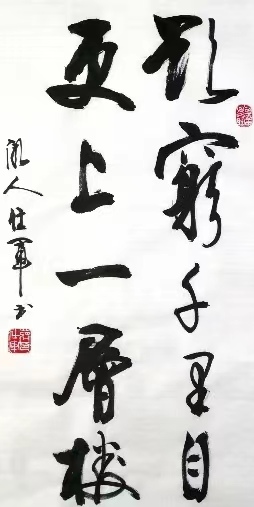 欲窮千里目
更上一層楼
人仕軍书